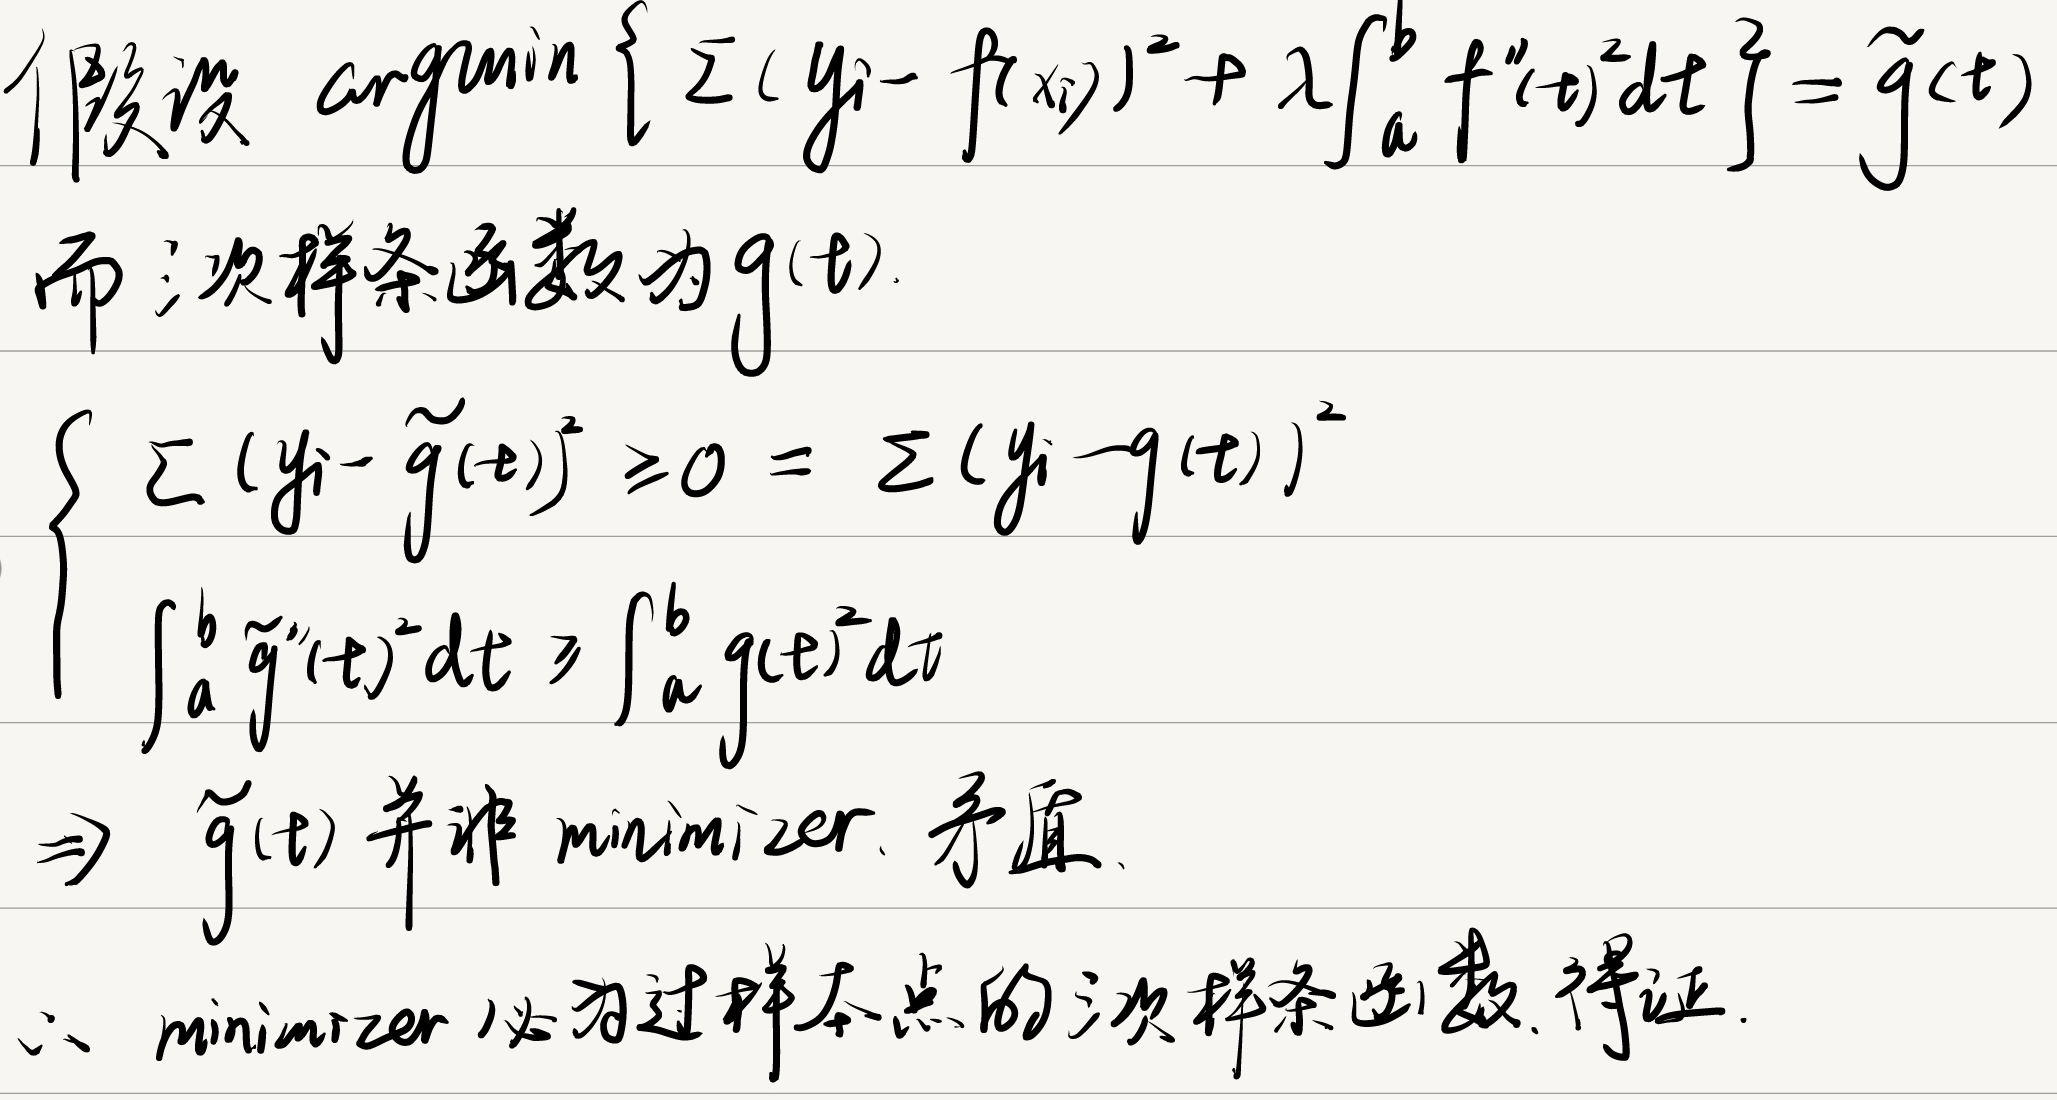 假设 argmin { Σ(yi - f(xi))² + λ∫ₐᵇ f''(t)²dt } = g̃(t)
而三次样条函数为 g(t).
{ Σ(yi - g̃(t))² ≥ 0 = Σ(yi - g(t))²
∫ₐᵇ g̃''(t)²dt ≥ ∫ₐᵇ g(t)²dt
⇒ g̃(t) 并非 minimizer. 矛盾.
∴ minimizer 必为过样本点的三次样条函数. 得证.